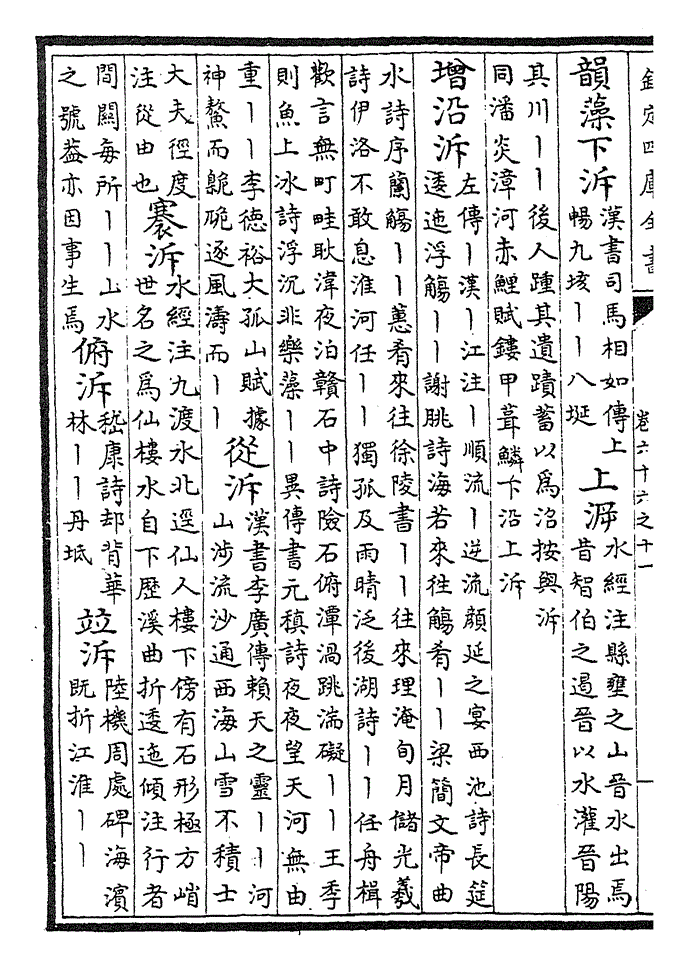 欽定四庫全書
卷六十六之十一
韻藻下泝
漢書司馬相如傳上
暢九垓丨丨八埏
上㴑
水經注縣壅之山晉水出焉
昔智伯之遏晉以水灌晉陽
其川丨丨後人踵其遺蹟蓄以為沼按與泝
同潘炎漳河赤鯉賦鏤甲葺鱗下沿上泝
增沿泝
左傳丨漢丨江注丨順流丨逆流顔延之宴西池詩長筵
逶迤浮觴丨丨謝朓詩海若來往觴肴丨丨梁簡文帝曲
水詩序蘭觴丨丨蕙肴來往徐陵書丨丨往來理淹旬月儲光羲
詩伊洛不敢息淮河任丨丨獨孤及雨晴泛後湖詩丨丨任舟楫
歡言無町畦耿湋夜泊贛石中詩險石俯潭渦跳湍礙丨丨王季
則魚上冰詩浮沉非樂藻丨丨異傳書元稹詩夜夜望天河無由
重丨丨李德裕大孤山賦據
神鼇而臲卼逐風濤而丨丨
從泝
漢書李廣傳賴天之靈丨丨河
山涉流沙通西海山雪不積士
大夫徑度
注從由也
褰泝
水經注九渡水北逕仙人樓下傍有石形極方峭
世名之為仙樓水自下歷溪曲折逶迤傾注行者
間關每所丨丨山水
之號蓋亦因事生焉
俯泝
嵇康詩却背華
林丨丨丹坻
竝泝
陸機周處碑海濱
既折江淮丨丨